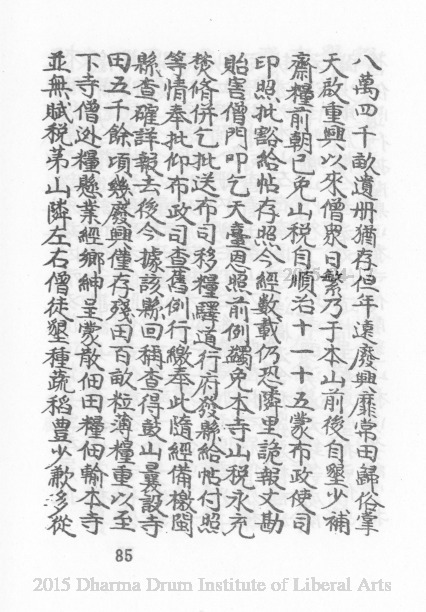 八萬四千畝遺册猶存但年遠廢興靡常田歸俗掌
天啟重興以來僧眾日繁乃于本山前後自墾少補
齋糧前朝已免山稅自順治十一十五蒙布政使司
印照批豁給帖存照今經數載仍恐隣里詭報丈勘
貽害僧門叩乞天臺恩照前例蠲免本寺山稅永充
焚脩併乞批送布司移糧驛道行府發縣給帖付照
等情奉批仰布政司查舊例行繳奉此隨經備檄閩
縣查確詳報去後今據該縣回稱查得鼓山曩設寺
田五千餘頃幾廢興僅存殘田百畝粒薄糧重以至
下寺僧迯糧懸業經鄉紳呈蒙散佃田糧佃輸本寺
並無賦稅苐山隣左右僧徒墾種蔬稻豊少歉多從
85
2015 Dharma Drum Institute of Liberal Arts